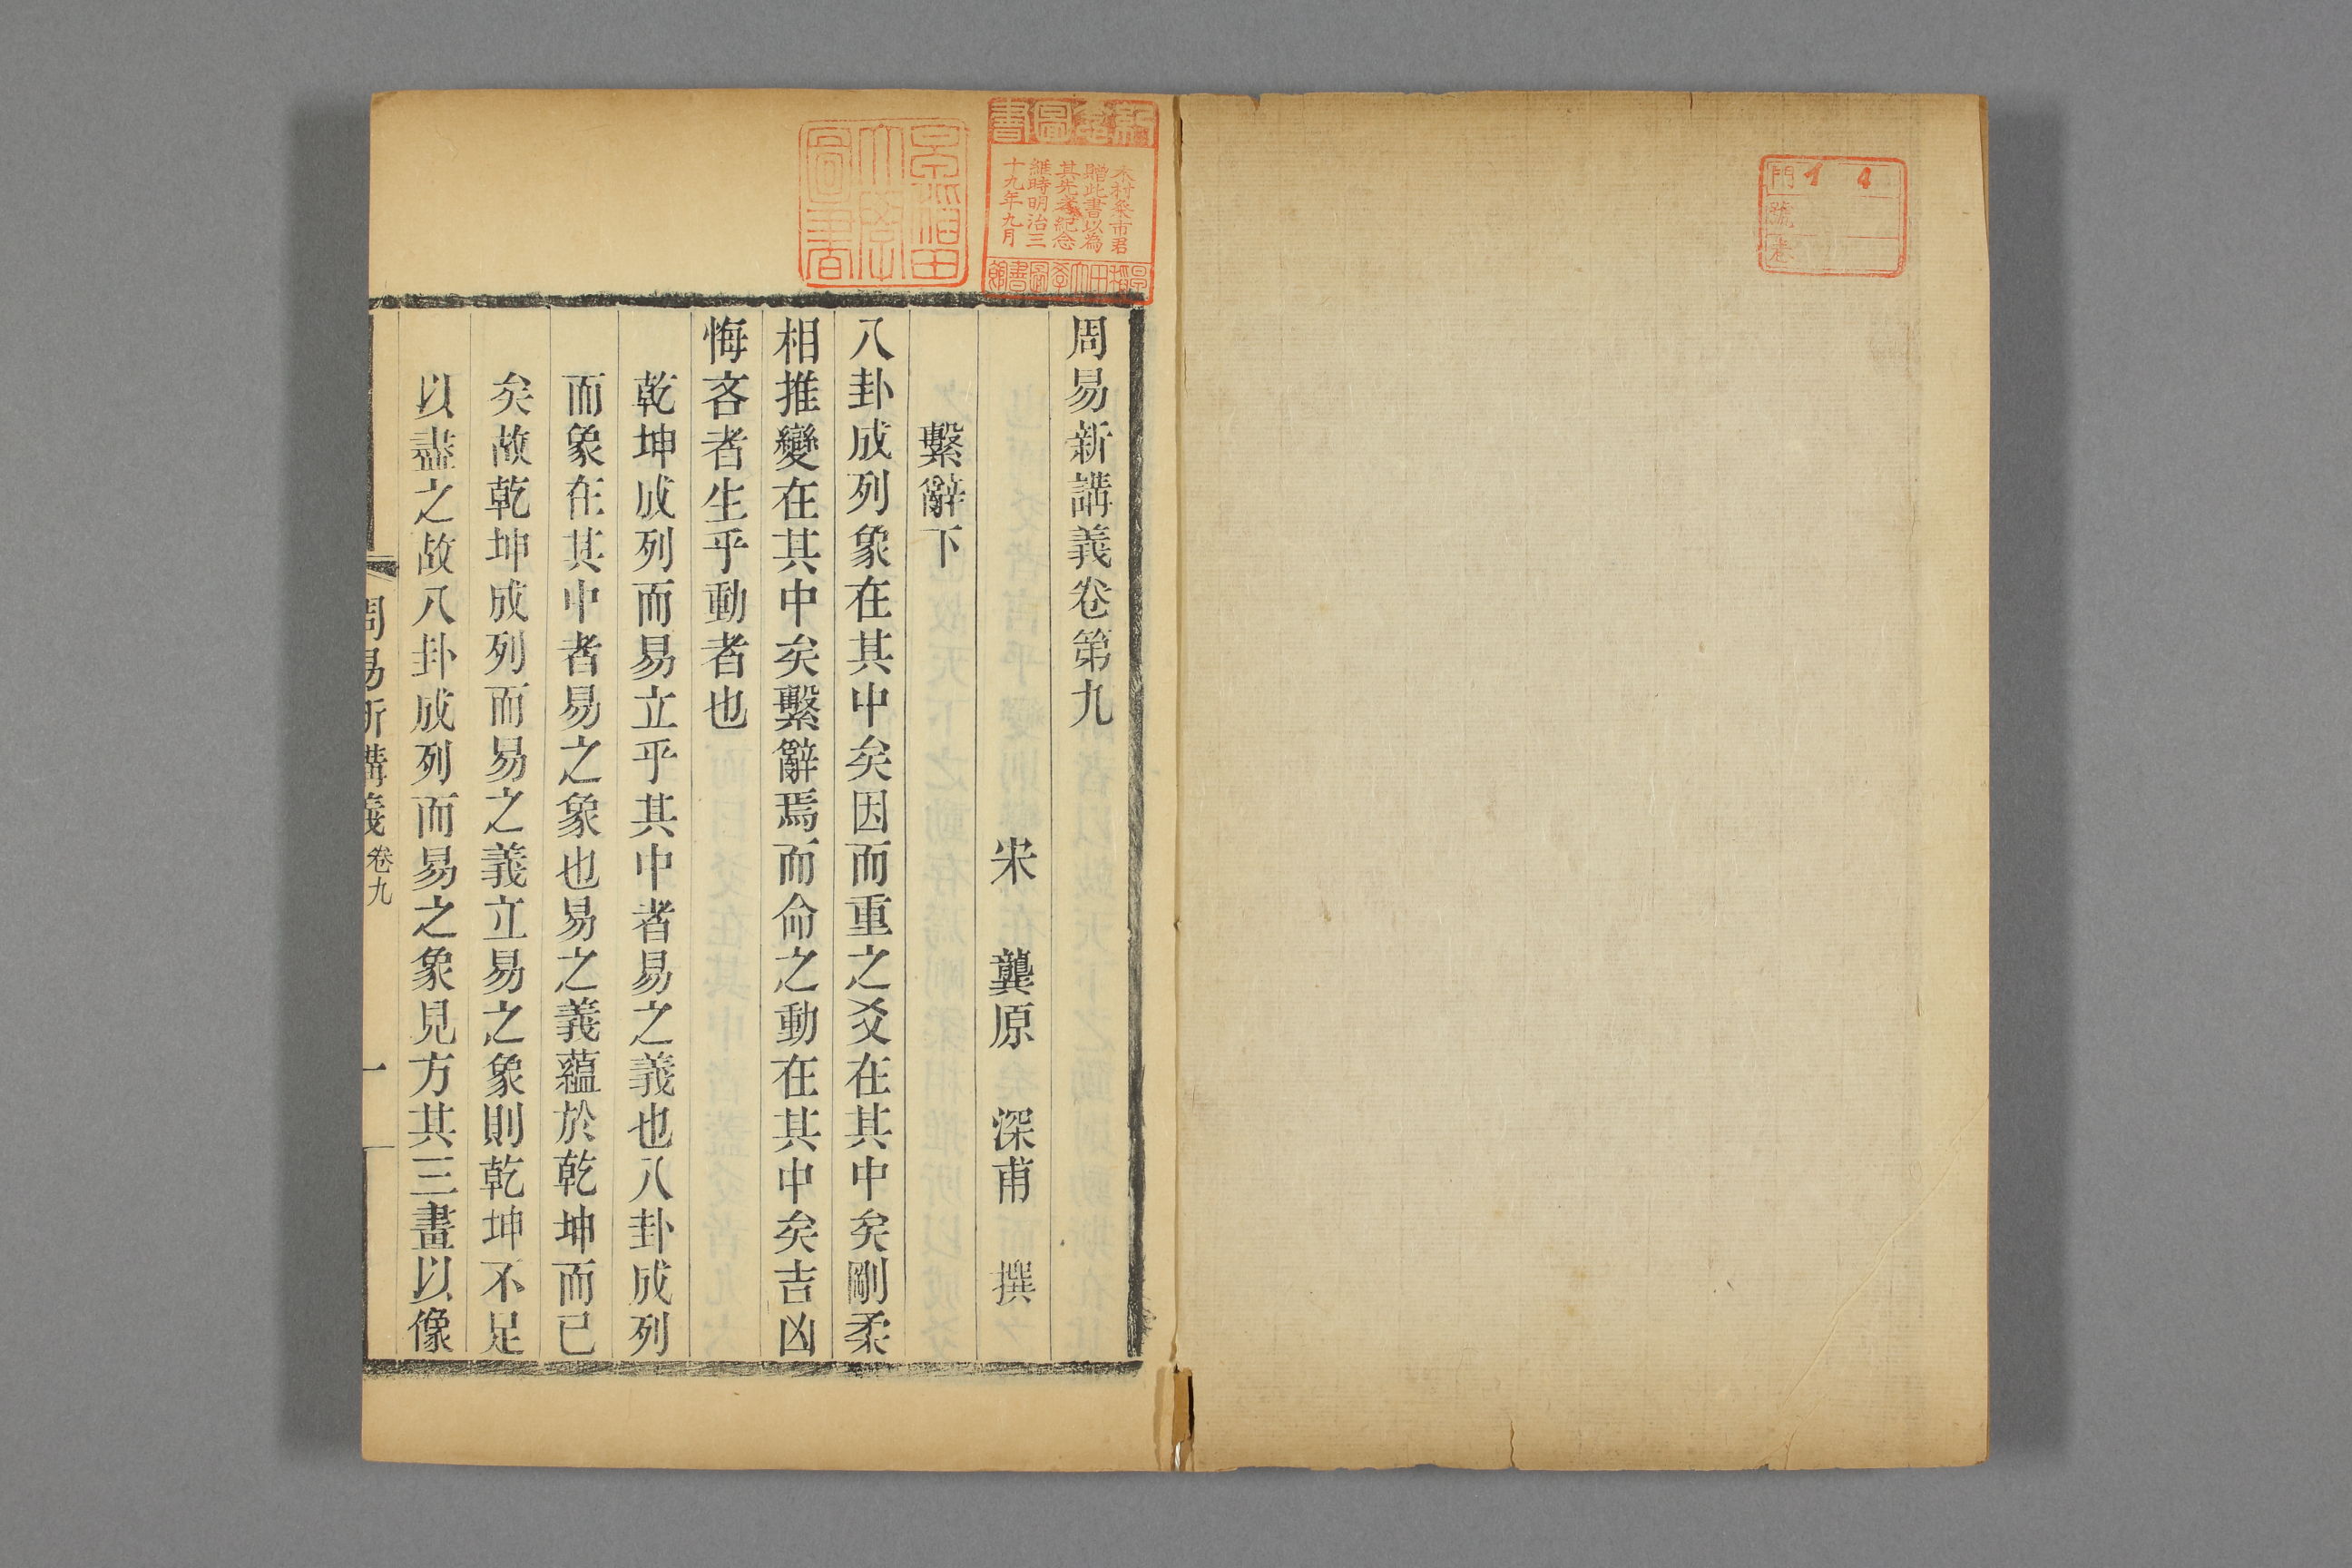 門
號
卷
周易新講義卷第九
宋 龔原 深甫 撰
繫辭下
八卦成列象在其中矣因而重之爻在其中矣剛柔
相推變在其中矣繫辭焉而命之動在其中矣吉凶
悔吝者生乎動者也
乾坤成列而易立乎其中者易之義也八卦成列
而象在其中者易之象也易之義蘊於乾坤而已
矣故乾坤成列而易之義立易之象則乾坤不足
以盡之故八卦成列而易之象見方其三畫以像
周易新講義 卷九 一
木村粂市君
贈此書以為
其先考紀念
維時明治三
十九年九月
早稻田大學圖書館
早稻田大學圖書